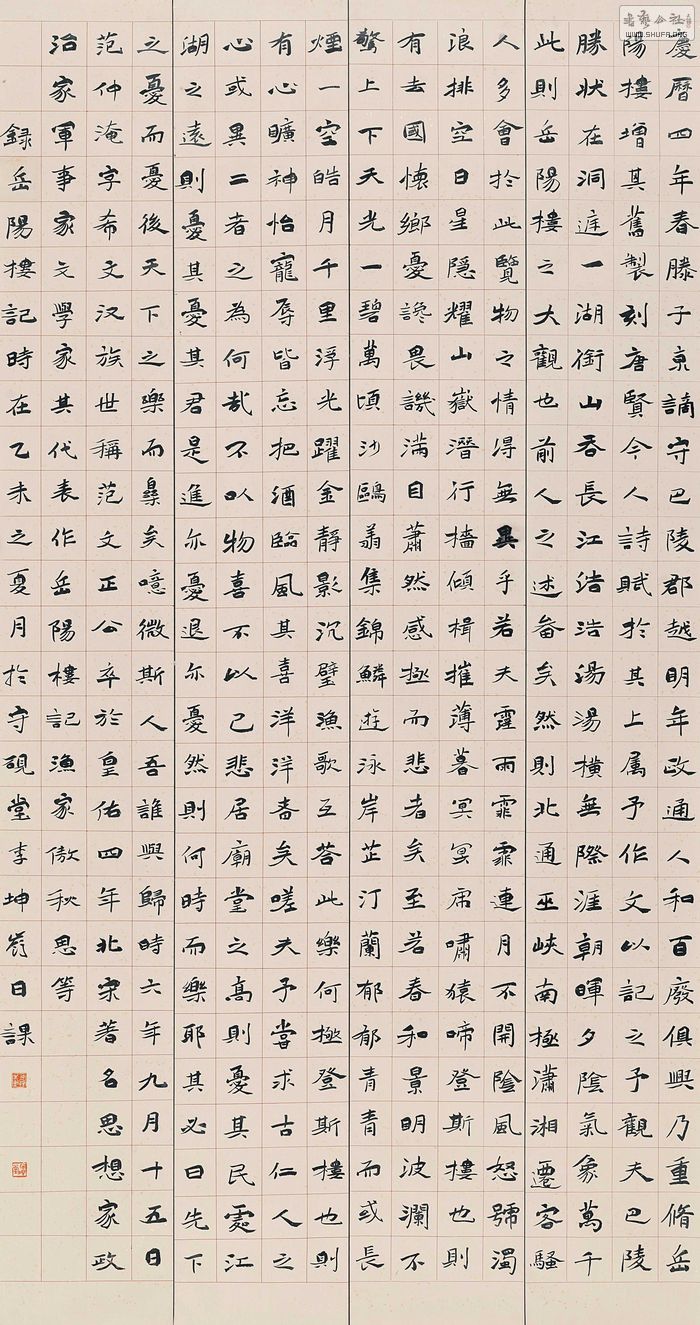 慶曆四年春滕子京謫守巴陵郡越明年政通人和百廢俱興乃重脩岳
陽樓增其舊製刻唐賢今人詩賦於其上属予作文以記之予觀夫巴陵
勝狀在洞庭一湖銜山吞長江浩浩湯湯橫無際涯朝暉夕陰氣象萬千
此則岳陽樓之大觀也前人之述备矣然則北通巫峽南極瀟湘遷客騷
人多會於此覽物之情得無異乎若夫霪雨霏霏連月不開陰風怒號濁
浪排空日星隱耀山嶽潛行檣傾楫摧薄暮冥冥虎嘯猿啼登斯樓也則
有去國懷鄉憂讒畏譏滿目蕭然感極而悲者矣至若春和景明波瀾不
驚上下天光一碧萬頃沙鷗翕集錦鱗遊泳岸芷汀蘭郁郁青青而或長
煙一空皓月千里浮光躍金靜影沉璧漁歌互答此樂何極登斯樓也則
有心曠神怡寵辱皆忘把酒臨風其喜洋洋者矣嗟夫予嘗求古仁人之
心或異二者之為何哉不以物喜不以己悲居廟堂之高則憂其民處江
湖之遠則憂其憂其君是進亦憂退亦憂然則何時而樂耶其必曰先下
之憂而憂後天下之樂而樂矣噫微斯人吾誰與歸時六年九月十五日
范仲淹字希文汉族世稱范文正公卒於皇佑四年北宋著名思想家政
治家軍事家文學家其代表作岳陽樓記漁家傲秋思等
録岳陽樓記時在乙未之夏月於守硯堂李坤日課
书艺公社
WWW.SHUFA.ORG